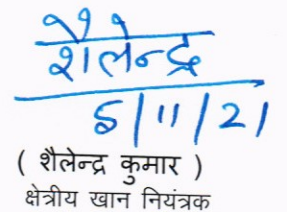 शैलेन्द्र
5/11/21
( शैलेन्द्र कुमार )
क्षेत्रीय खान नियंत्रक